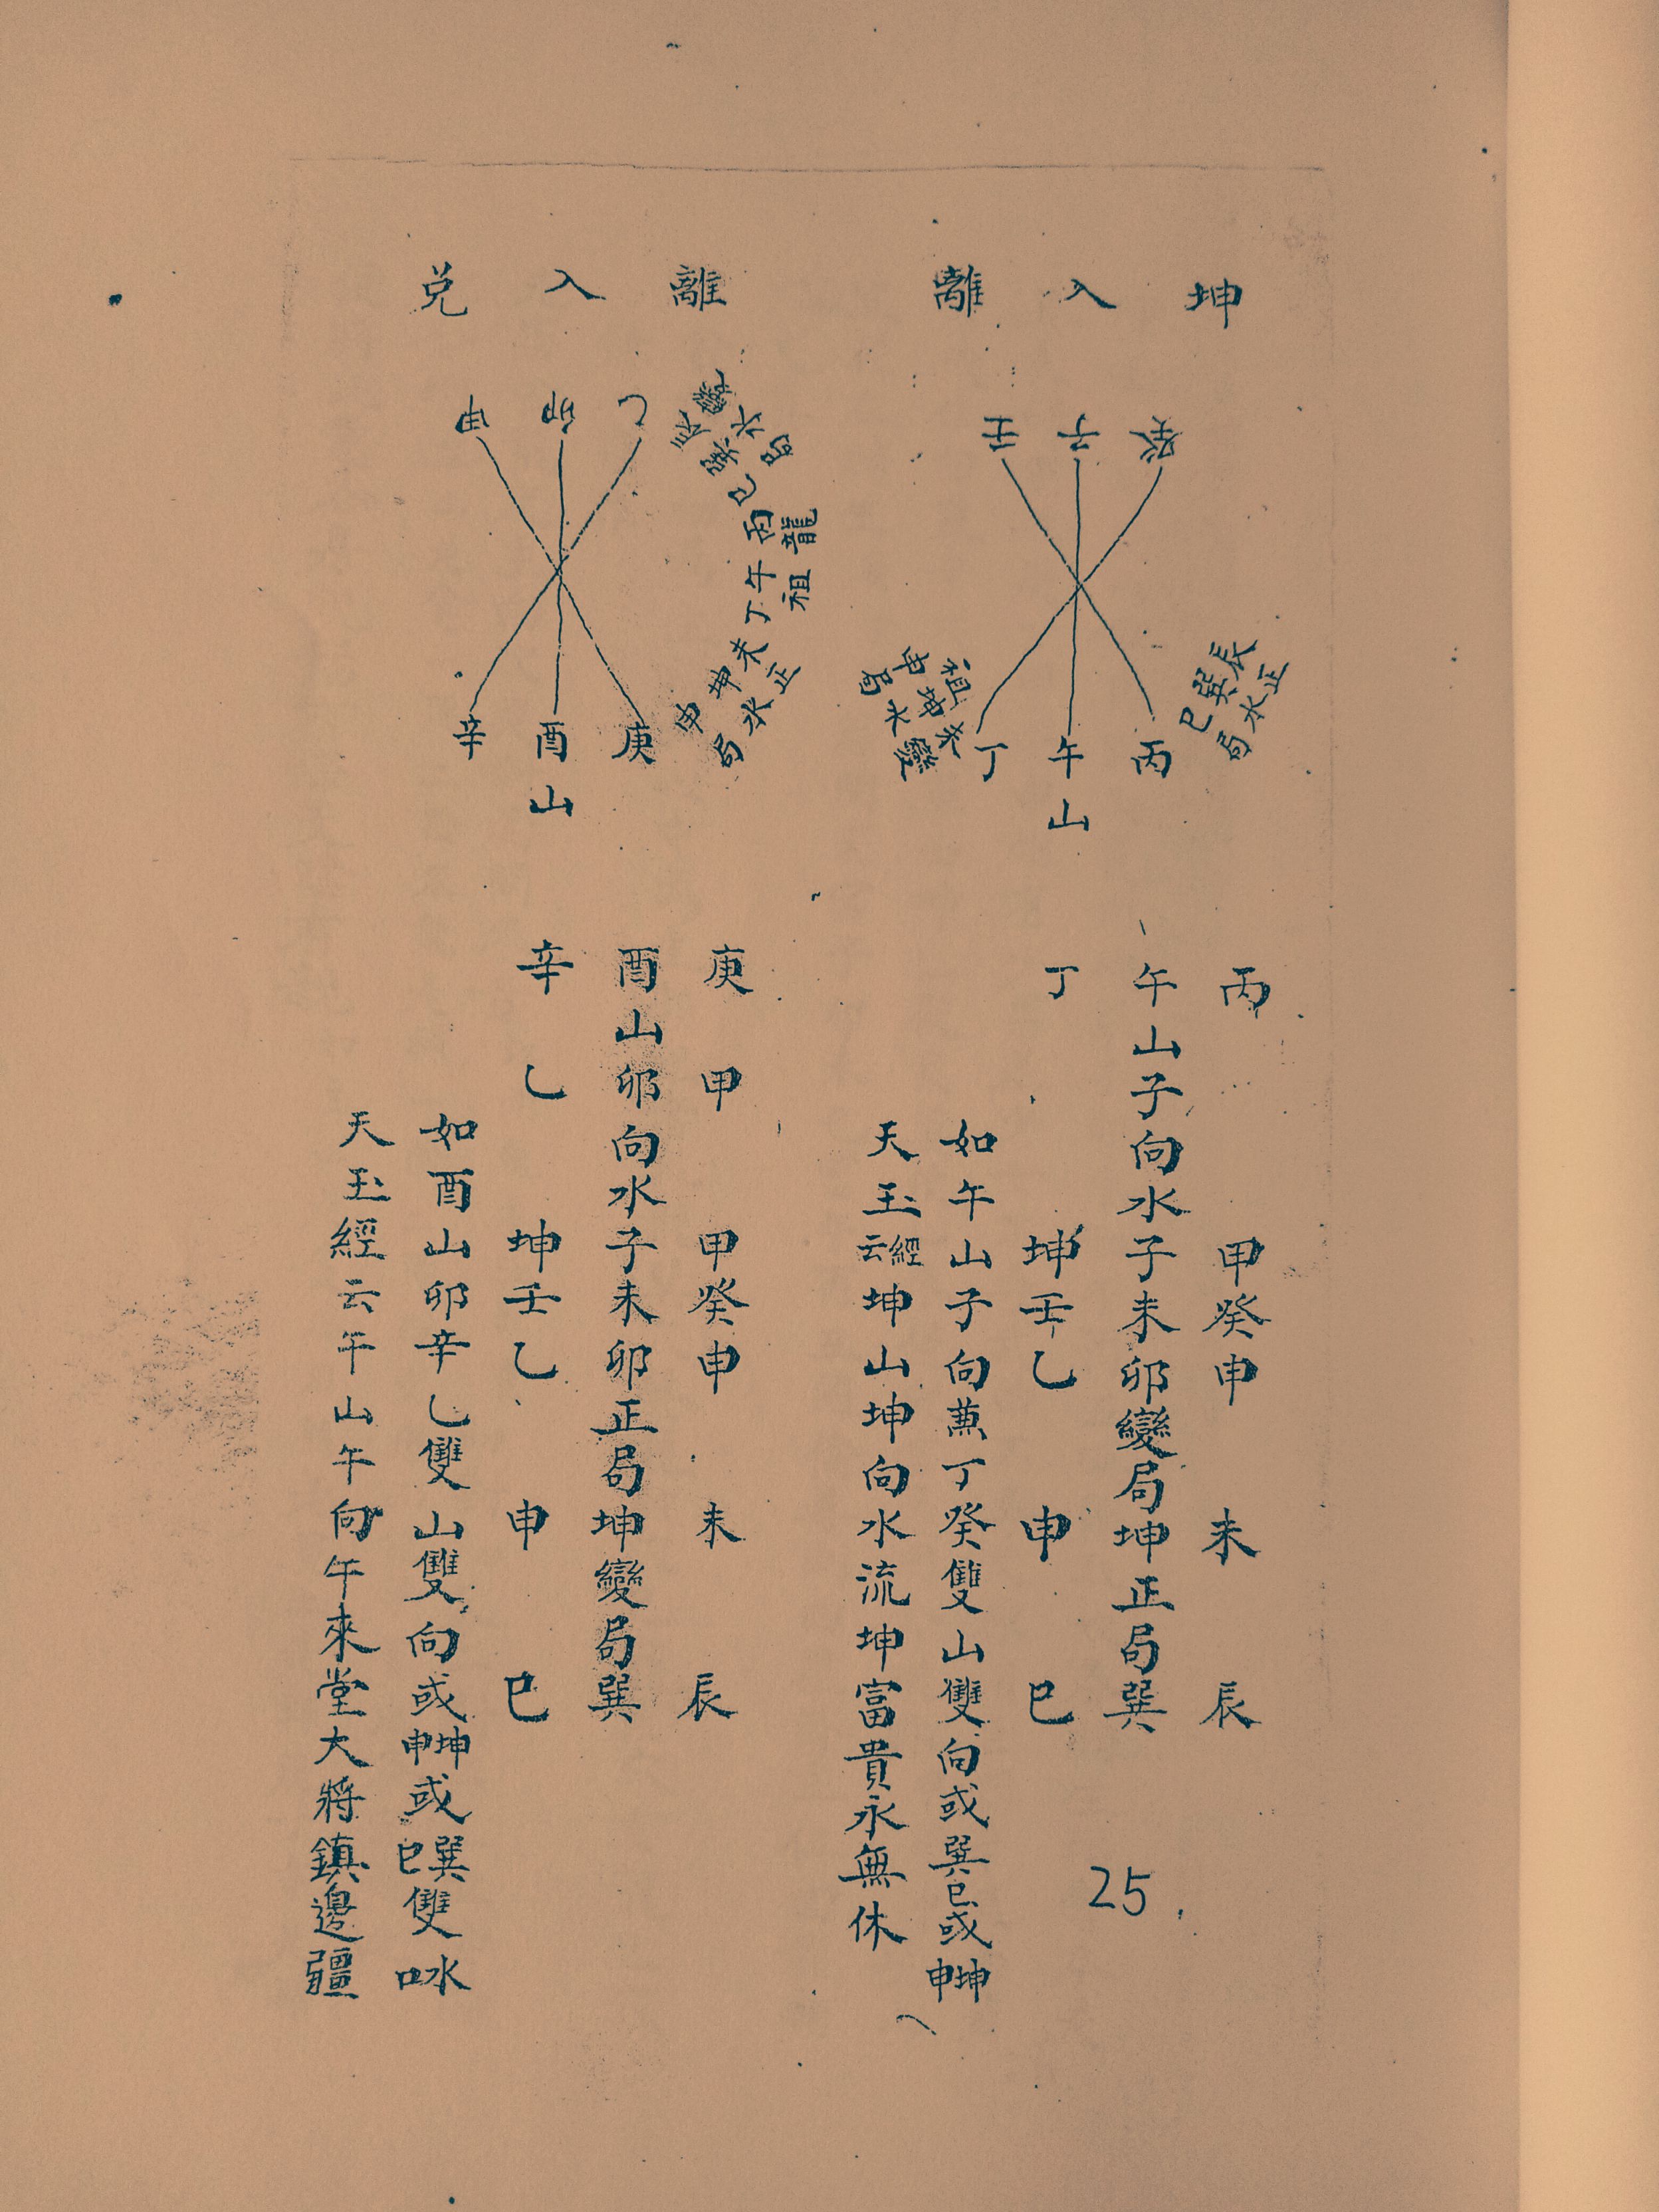 坤入離
癸
子
壬
辰巽巳
正水局
丙
午山
丁
未坤申
祖
變水局
丙　甲癸申　未　辰
午山子向水子未卯變局坤正局巽
丁　坤壬乙　申　巳
如午山子向兼丁癸雙山雙向或巽巳或坤申
天玉經云坤山坤向水流坤富貴永無休
25
離入兌
乙
卯
甲
辰巽巳
變水局
丙午丁
龍祖
未坤申
正水局
庚
酉山
辛
庚　甲　甲癸申　未　辰
酉山卯向水子未卯正局坤變局巽
辛　乙　坤壬乙　申　巳
如酉山卯辛乙雙山雙向或坤申或巽巳雙水口
天玉經云午山午向午來堂大將鎮邊疆